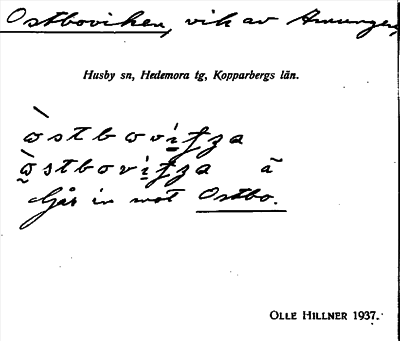 Ostboviken, vik av Amungen,
Husby sn, Hedemora tg, Kopparbergs län.
ò̀stbovi̠fza
ò̰stbovi̠fza ã
Går in mot Ostbo.
OLLE HILLNER 1937.